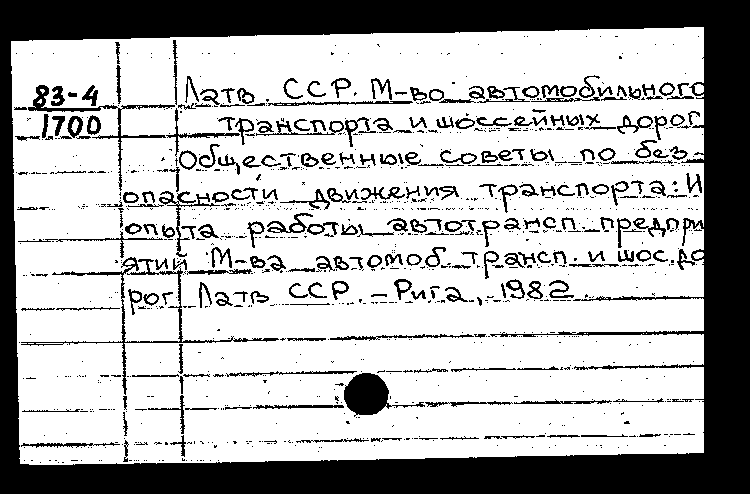 83-4 Латв. ССР. М-во автомобильного
1700 транспорта и шоссейных дорог
Общественные советы по без-
опасности движения транспорта: И
опыта работы автотрансп. предпри
ятий М-ва автомоб. трансп. и шос. до
рог Латв ССР. - Рига, 1982.